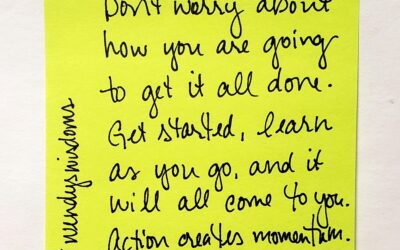 Don't worry about
how you are going
to get it all done.
Get started, learn
as you go, and it
will all come to you.
Action creates momentum.
wendyswisdoms